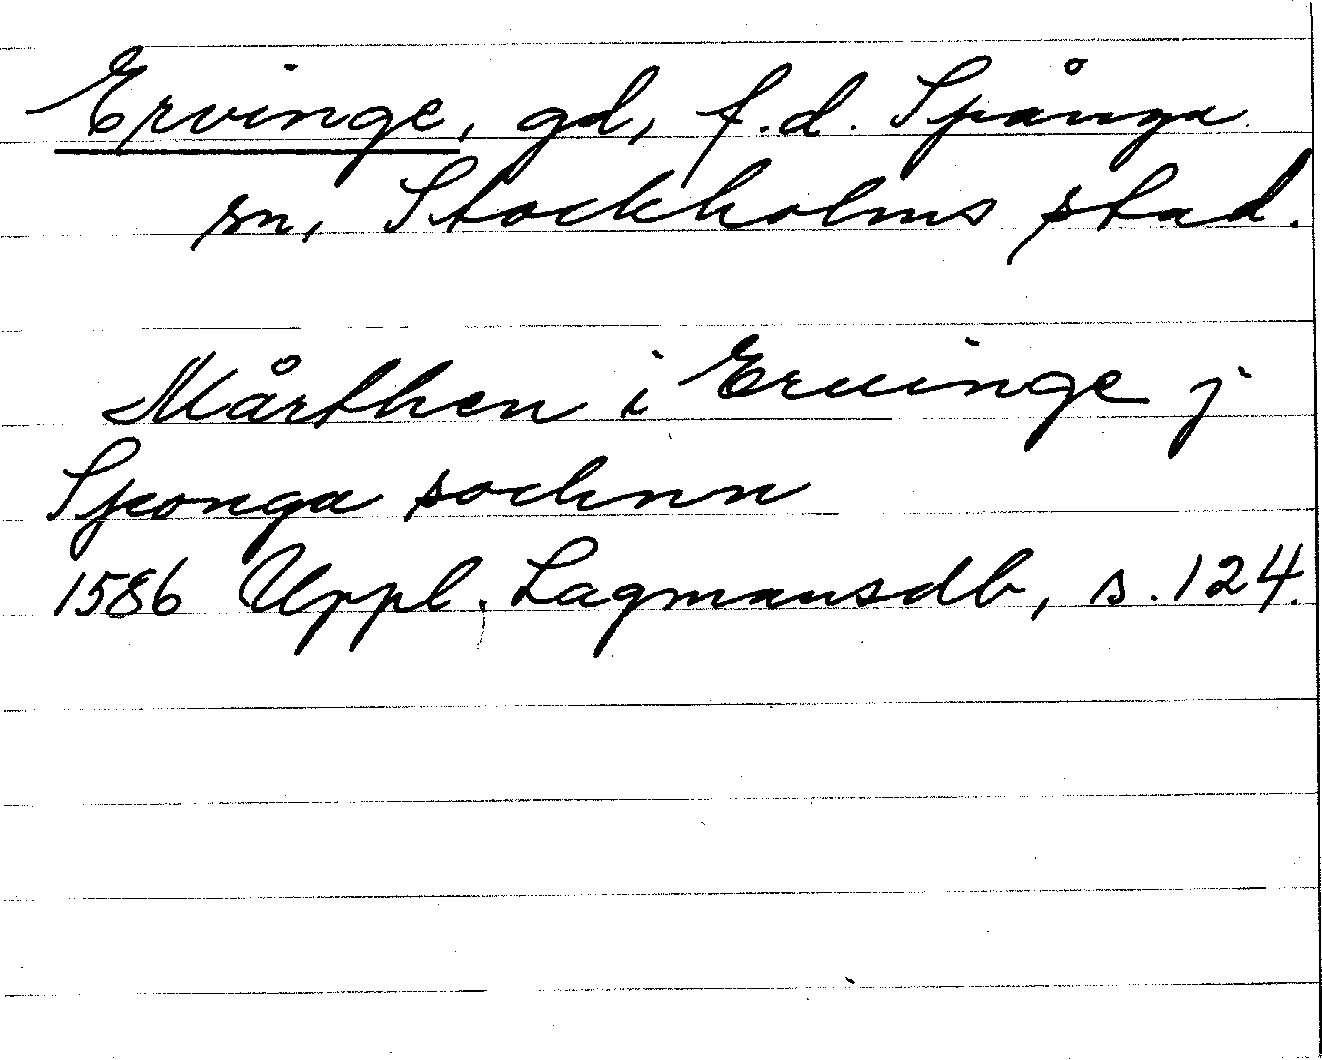 Ervinge, gd, f.d. Spånga
sn, Stockholms stad.
Mårthen i Eruinge j
Sponga sochnn
1586 Uppl. Lagmansdb, s. 124.